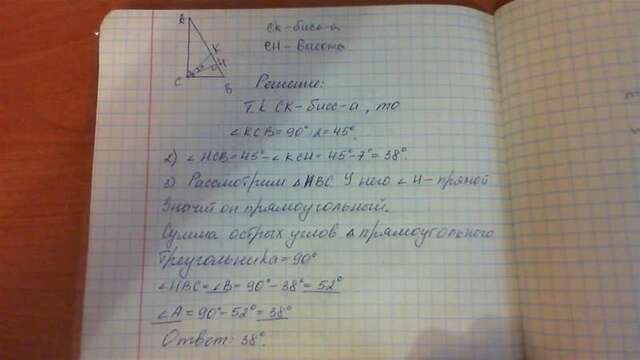 A
K
H
C
B
СК-бисс-а
СН-высота
Решение:
Т.к СК-бисс-а, то
∠KCB=90°:2=45°.
2) ∠HCB=45°-∠KCH=45°-7°=38°.
3) Рассмотрим △HBC. У него ∠H-прямой
Значит он прямоугольный.
Сумма острых углов △ прямоугольного
треугольника=90°
∠HBC=∠B=90°-38°=52°
∠A=90°-52°=38°
Ответ: 38°.